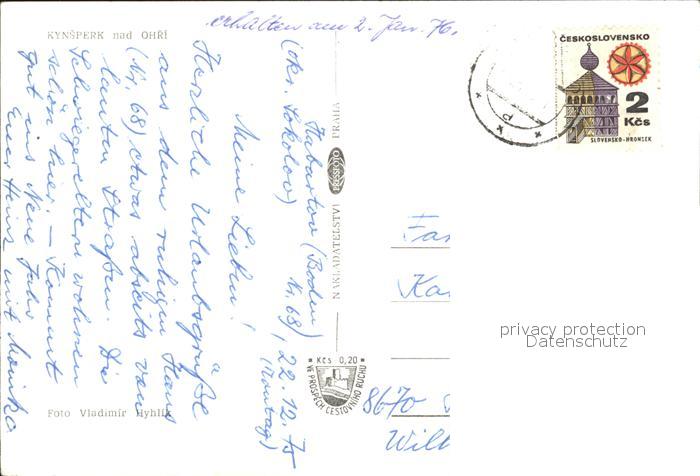 KYNŠPERK nad OHŘÍ
erhalten am 2. Jan. 76.
Habartov (Boden
Nr. 68), 22.12.75
(okr. Sokolov) (Montag)
Meine Lieben!
Herzliche Urlaubsgrüße
aus dem ruhigen Haus
(Nr. 68) etwas abseits von
lauten Straßen. Die
Schwiegereltern wohnen
schön hier. – Kommt
gut ins Neue Jahr
Euer Heinz mit Monika
Foto Vladimír Hyhlík
NAKLADATELSTVÍ PRESSFOTO PRAHA
Kčs 0,20
VE PROSPĚCH CESTOVNÍHO RUCHU
ČESKOSLOVENSKO
2
Kčs
SLOVENSKO-HRONSEK
Fa
Ka
8670
Wil
privacy protection
Datenschutz